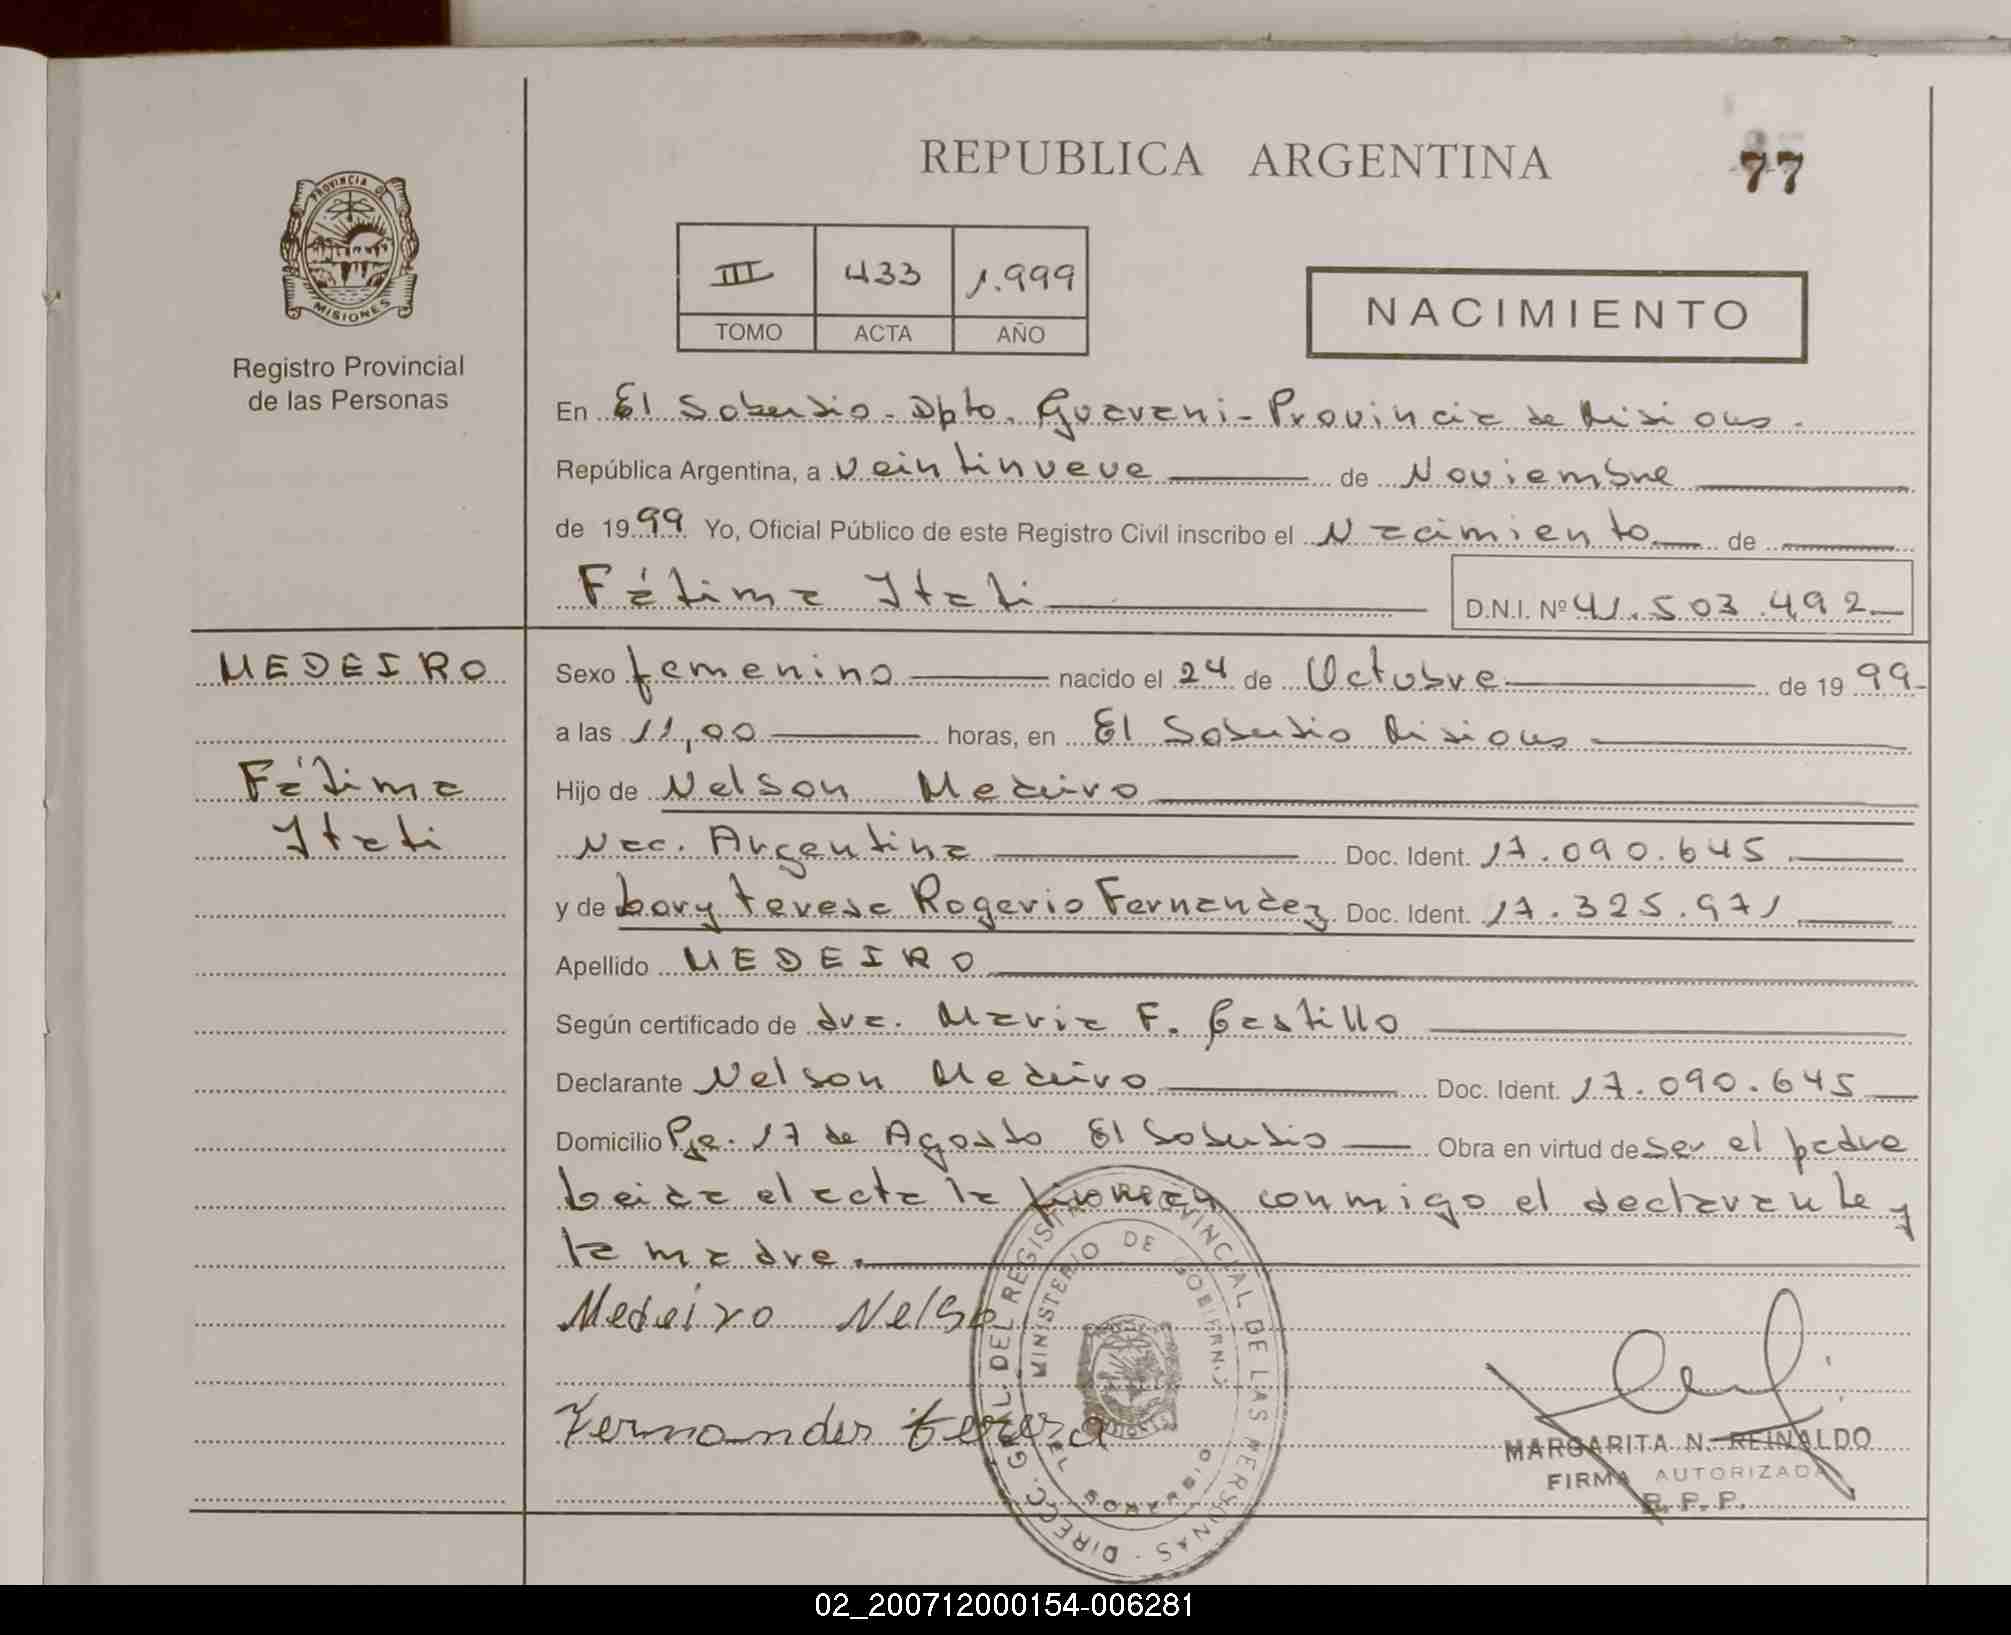 REPUBLICA ARGENTINA
77
PROVINCIA DE
MISIONES
Registro Provincial
de las Personas
III 433 1.999
TOMO ACTA AÑO
NACIMIENTO
En El Soberbio - Dpto. Guarani - Provincia de Misiones.
República Argentina, a veintinueve de Noviembre
de 1999 Yo, Oficial Público de este Registro Civil inscribo el Nacimiento de
Fátima Itati D.N.I. Nº 41.503.492
MEDEIRO
Fátima
Itati
Sexo femenino nacido el 24 de Octubre de 1999
a las 11,00 horas, en El Soberbio Misiones
Hijo de Nelson Medeiro
Nac. Argentina Doc. Ident. 17.090.645
y de Lory teresa Rogerio Fernandez Doc. Ident. 17.325.971
Apellido MEDEIRO
Según certificado de dra. Maria F. Castillo
Declarante Nelson Medeiro Doc. Ident. 17.090.645
Domicilio Pje. 17 de Agosto El Soberbio Obra en virtud de ser el padre
Leida el acta la firman conmigo el declarante y
la madre.
Medeiro Nelso
Fernander tereza
DIRECC. GRAL. DEL REGISTRO PROVINCIAL DE LAS PERSONAS
MINISTERIO DE GOBIERNO
EL SOBERBIO
MARGARITA N. REINALDO
FIRMA AUTORIZADA
R. P. P.
02_200712000154-006281